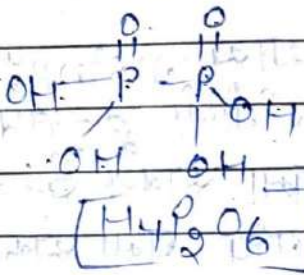 O O
OH P - P OH
OH OH
[H4P2O6